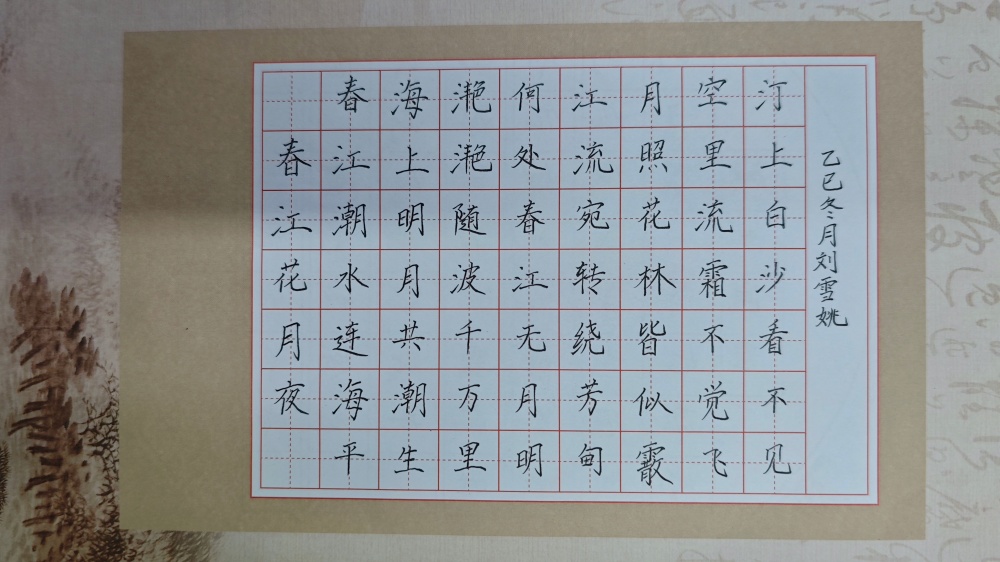 春江花月夜
春江潮水连海平
海上明月共潮生
滟滟随波千万里
何处春江无月明
江流宛转绕芳甸
月照花林皆似霰
空里流霜不觉飞
汀上白沙看不见
乙巳冬月刘雪姚